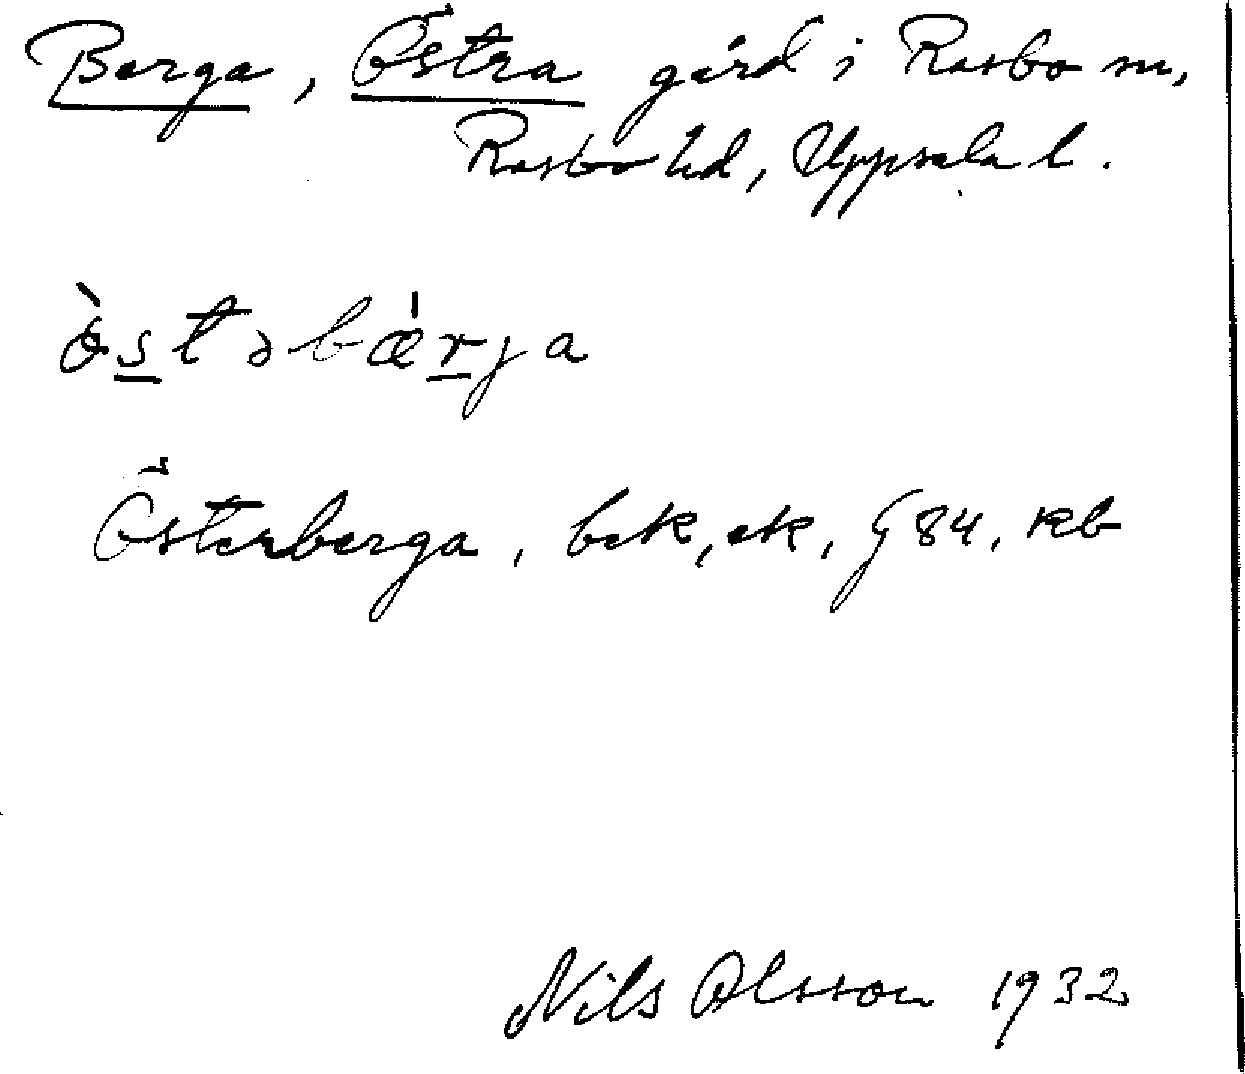 Berga, Östra gård i Rasbo sn,
Rasbo hd, Uppsala l.
ö̀stəbæ̍rja
Österberga, bek, ek, § 84, kb
Nils Olsson 1932